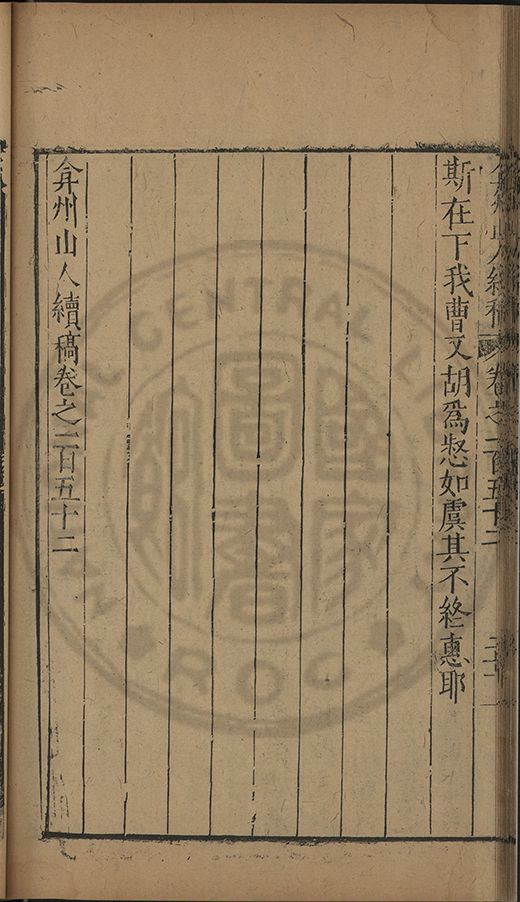 弇州山人續稿 卷之一百五十二
斯在下我曹又胡爲愁如虞其不終惠耶
弇州山人續稿卷之一百五十二